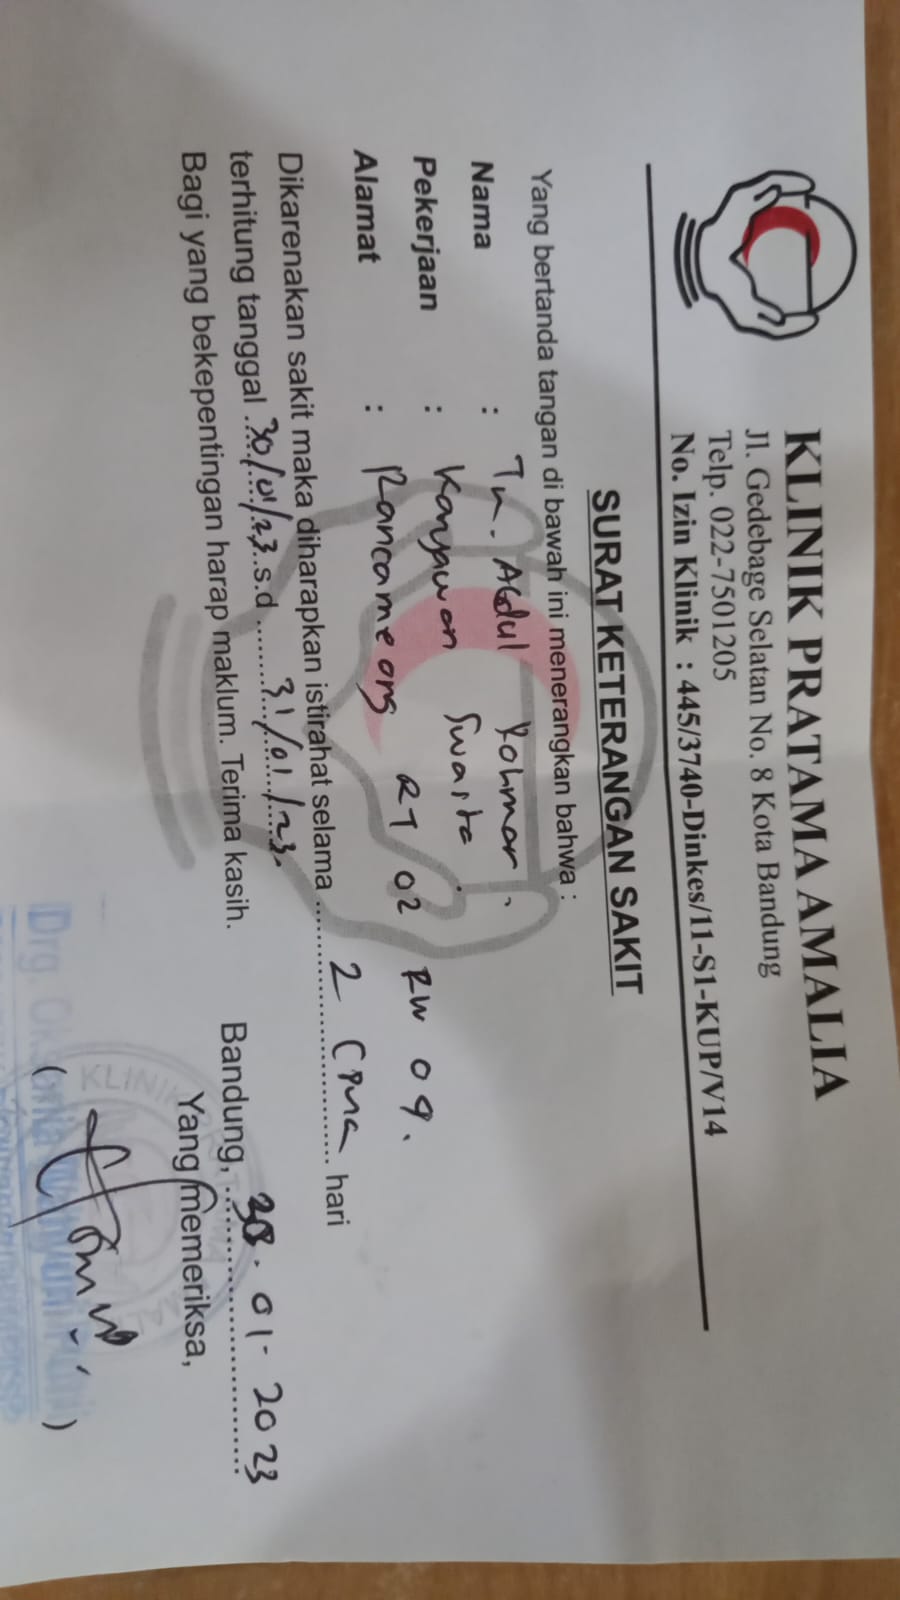 KLINIK PRATAMA AMALIA
Jl. Gedebage Selatan No. 8 Kota Bandung
Telp. 022-7501205
No. Izin Klinik : 445/3740-Dinkes/11-S1-KUP/V14
SURAT KETERANGAN SAKIT
Yang bertanda tangan di bawah ini menerangkan bahwa :
Nama : Tn. Abdul Rohman.
Pekerjaan : Karyawan Swasta
Alamat : Rancameong RT 02 RW 09.
Dikarenakan sakit maka diharapkan istirahat selama 2 (Dua hari
terhitung tanggal 30/01/23 s.d 31/01/23.
Bagi yang bekepentingan harap maklum. Terima kasih.
Bandung, 30.01-2023
Yang memeriksa,
KLINIK PRATAMA
( )
Drg.